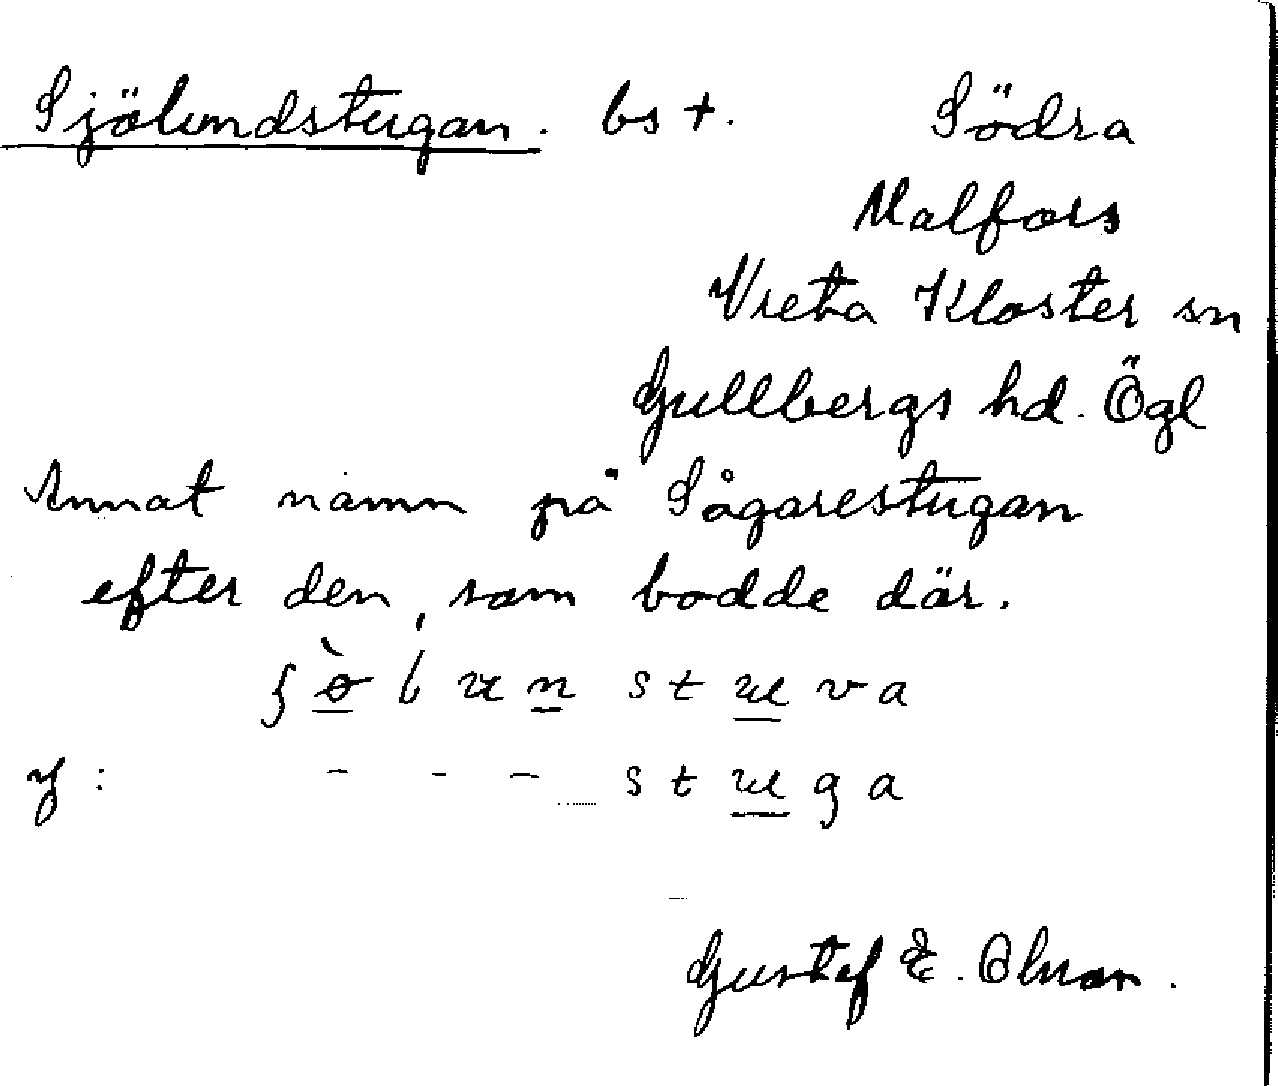 Sjölundstugan. bs †. Södra
Malfors
Vreta Kloster sn
Gullbergs hd. Ögl
Annat namn på Sågarestugan
efter den, som bodde där.
stuva
y: - - - stuga
Gustef E. Olsson.